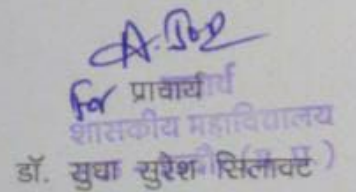 for प्राचार्य
शासकीय महाविद्यालय
डॉ. सुधा सुरेश सिलावट